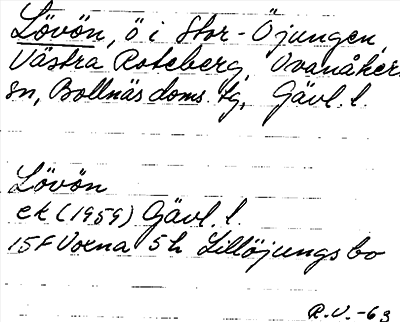 Lövön, ö i Stor-Öjungen,
Västra Roteberg, Ovanåkers
sn, Bollnäs doms. tg, Gävl. l.
Lövön
ek (1959) Gävl. l.
15F Voxna 5h Lillöjungsbo
R.V. -63